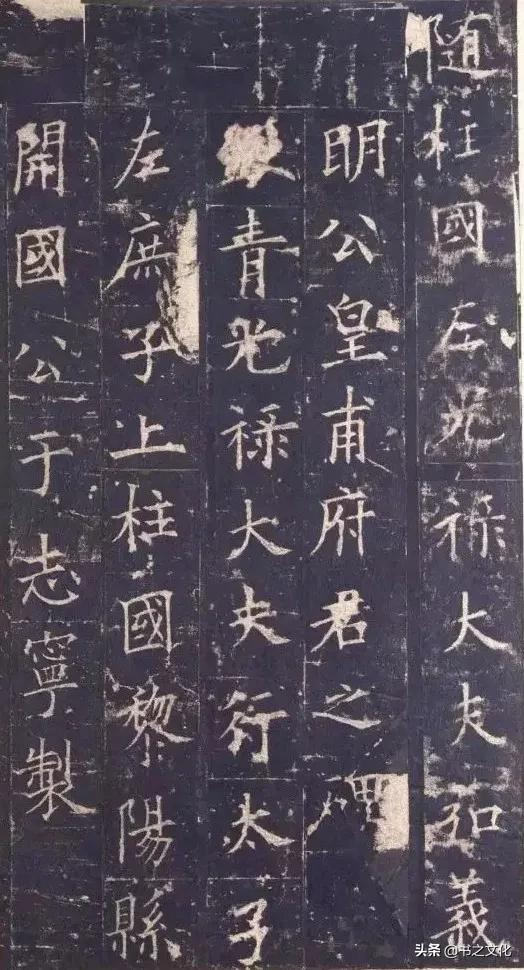 随柱國左光祿大夫弘義
明公皇甫府君之碑
銀青光祿大夫行太子
左庶子上柱國黎陽縣
開國公于志寧製
头条 @书之文化